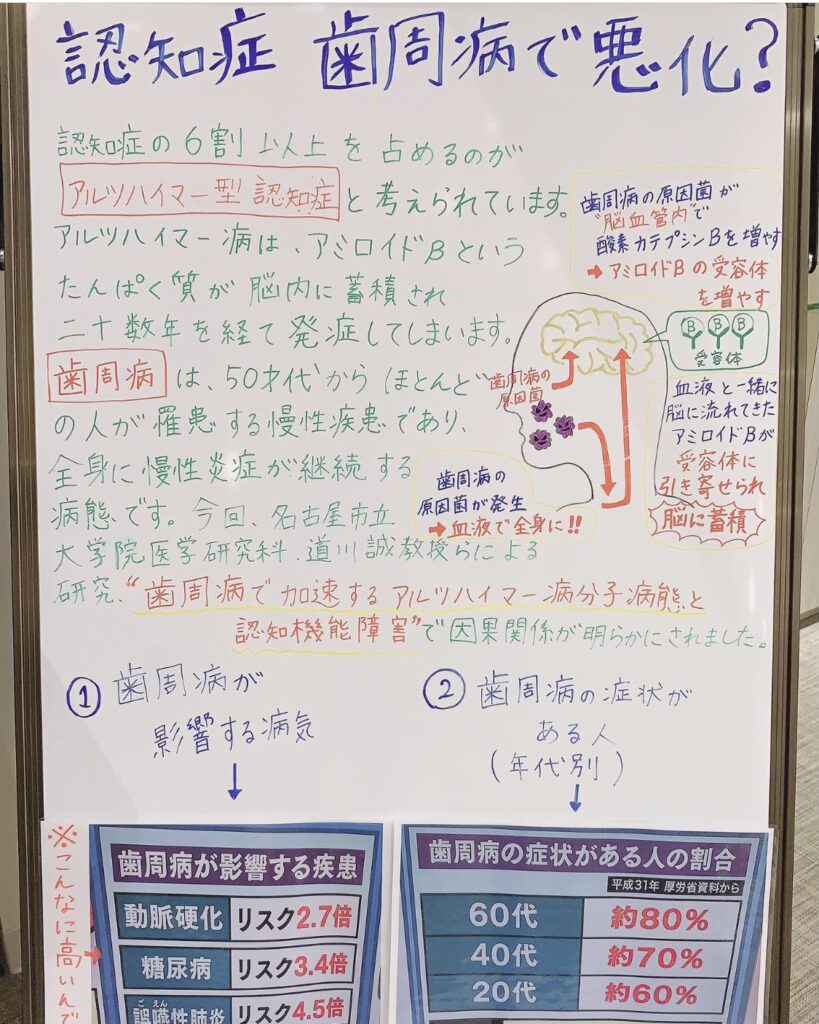 認知症 歯周病で悪化?
認知症の6割以上を占めるのが
アルツハイマー型 認知症と考えられています。
アルツハイマー病は、アミロイドβという
たんぱく質が脳内に蓄積され
二十数年を経て発症してしまいます。
歯周病は、50才代からほとんど
の人が罹患する慢性疾患であり、
全身に慢性炎症が継続する
病態です。今回、名古屋市立
大学院医学研究科、道川誠教授らによる
研究、“歯周病で加速するアルツハイマー病分子病態と
認知機能障害”で因果関係が明らかにされました。
歯周病の原因菌が
“脳血管内”で
酸素カテプシンBを増やす
→アミロイドβの受容体
を増やす
β β β
受容体
歯周病の
原因菌
血液と一緒に
脳に流れてきた
アミロイドβが
受容体に
引き寄せられ
脳に蓄積
歯周病の
原因菌が発生
→血液で全身に!!
① 歯周病が
影響する病気
↓
② 歯周病の症状が
ある人
(年代別)
↓
※こんなに高いんで
歯周病が影響する疾患
動脈硬化 リスク2.7倍
糖尿病 リスク3.4倍
誤嚥性肺炎 リスク4.5倍
ごえん
歯周病の症状がある人の割合
平成31年 厚労省資料から
60代 約80%
40代 約70%
20代 約60%